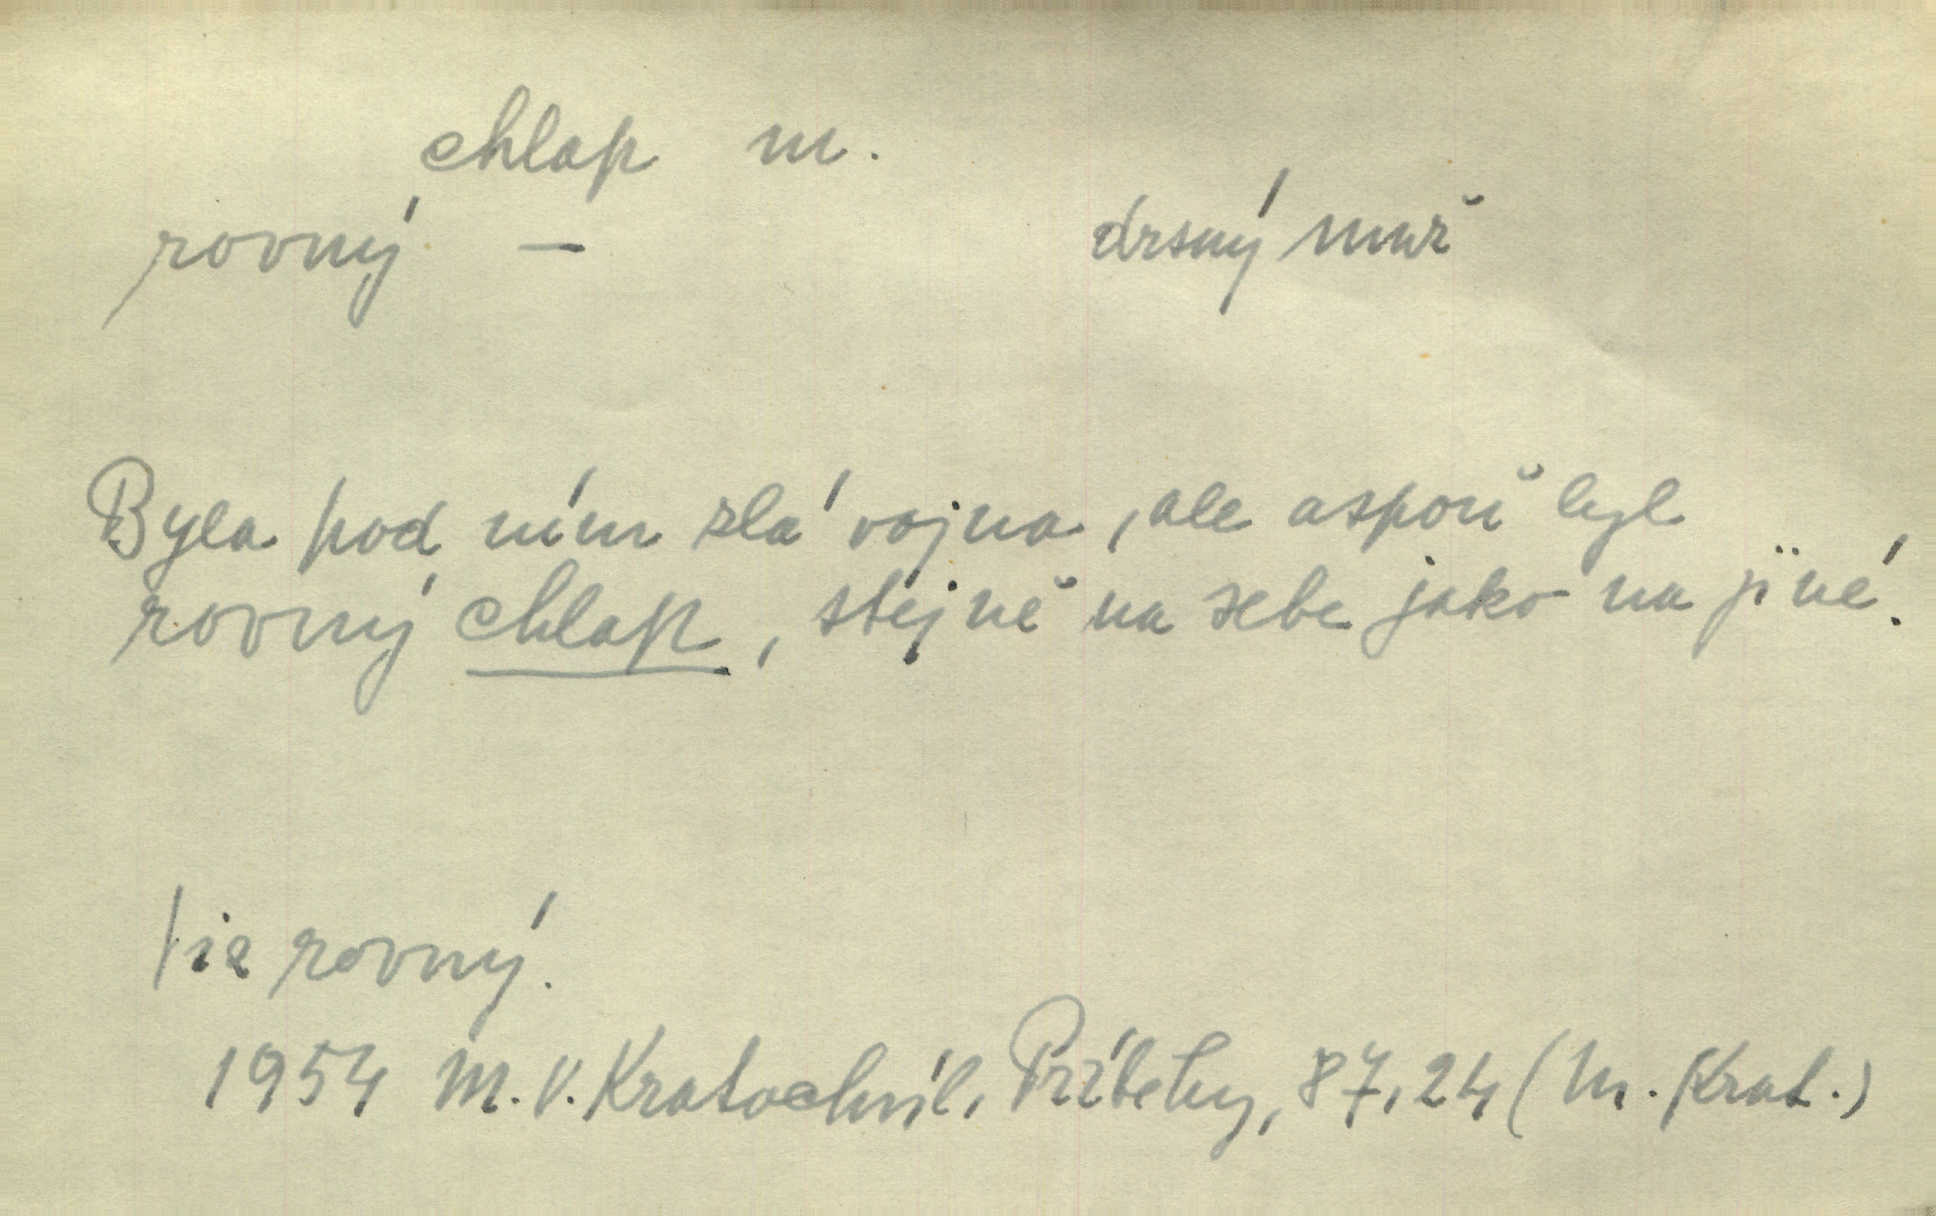 chlap m.
rovný — drsný muž
Byla pod ním zlá vojna, ale aspoň byl
rovný chlap, stejně na sebe jako na jiné.
Viz rovný.
1954 M. V. Kratochvíl, Příběhy, 87,24 (M. Krat.)